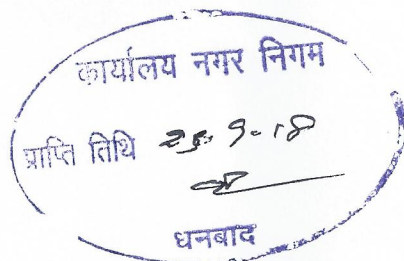 कार्यालय नगर निगम
प्राप्ति तिथि 25.9.18
धनबाद